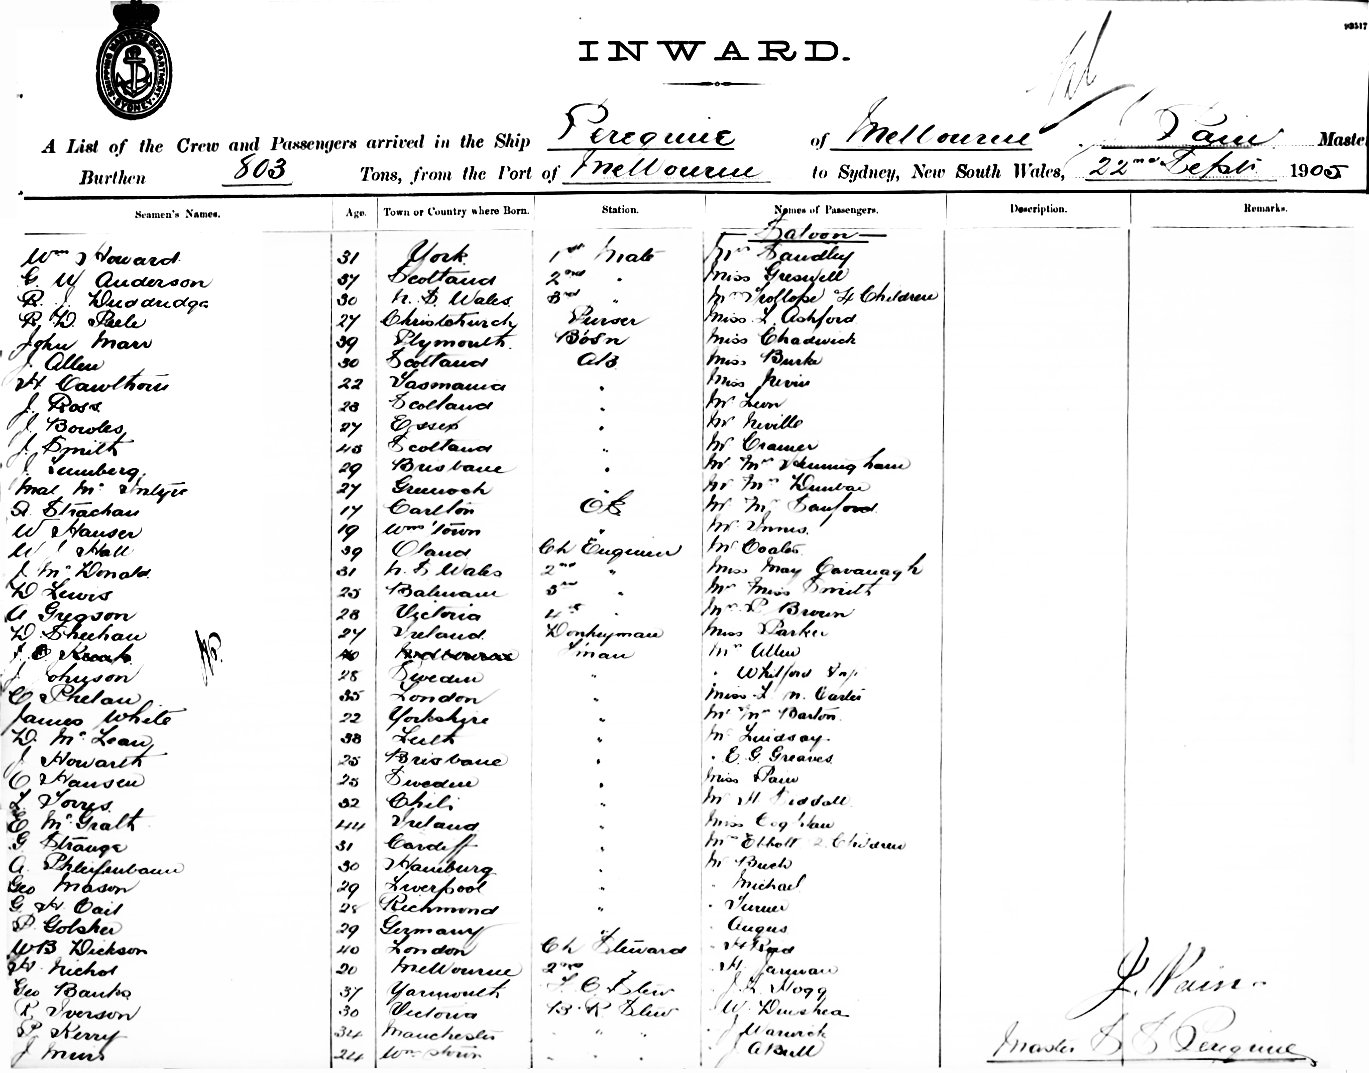 SHIPPING MASTERS DEPARTMENT SYDNEY
INWARD.
A List of the Crew and Passengers arrived in the Ship Peregrine of Melbourne Pain Maste
Burthen 803 Tons, from the Port of Melbourne to Sydney, New South Wales, 22nd Septr 1905
Seamen's Names. Age. Town or Country where Born. Station. Names of Passengers. Description. Remarks.
Saloon
Wm Howard 31 York 1st Mate Mr Sandley
G W Anderson 37 Scotland 2nd " Miss Greswell
R J Duddridge 30 N. S. Wales 3rd " Mrs Trollope 4 Children
R D Peele 27 Christchurch Purser Miss L Ashford
John Marr 39 Plymouth Bosn Miss Chadwick
J Allen 30 Scotland AB Miss Burke
H Cawthorn 22 Tasmania " Miss Nevin
J Ross 28 Scotland " Mr Leon
J Bowles 27 Essex " Mr Neville
J Smith 45 Scotland " Mr Cramer
J Lumberg 29 Brisbane " Mr Mrs
Mal McIntyre 27 Greenock Mr Mrs Dunbar
A Strachan 17 Carlton OS Mr Mrs Sanford
W Hauser 19 Wm Town " Mr Innes
W Hall 39 Oland Ch Engineer Mr Coates
J McDonald 31 N. S. Wales 2nd " Miss May Cavanagh
D Lewis 25 Balmain 3rd Mrs Miss Smith
A Gregson 28 Victoria 4th " Mrs P Brown
D Sheehan 27 Ireland Donkeyman Miss Parker
40 Fireman Mrs Allen
J Johnson 28 Sweden " " Whitford
C Phelan 35 London " Miss L N. Carter
James White 22 Yorkshire " Mr Mrs Barton
D McLean 38 Leith " Mr Lindsay
J Howarth 25 Brisbane " " E. G. Greaves
C Hansen 25 Sweden " Miss Pain
L Torres 32 Chili " Mr H Siddall
E McGrath 44 Ireland " Miss Coghlan
G Strange 31 Cardiff " Mrs 2 Children
A Phleifenbaum 30 Hamburg " Mr Buck
Geo Mason 29 Liverpool " " Michael
G H Cail 28 Richmond " " Turner
P Golsher 29 Germany " " Angus
W B Dickson 40 London Ch Steward " H
H Nichol 20 Melbourne 2nd " " H. Jarman
Geo Banks 37 Yarmouth F. C. Stew " J. L. Hogg
R Iverson 30 Victoria B. R. Stew " W Dinshea
P Kerry 34 Manchester " " " " J Warwick
J Muirs 24 Wm Town " " " " J A Bull
J. Pain
Master S S Peregrine